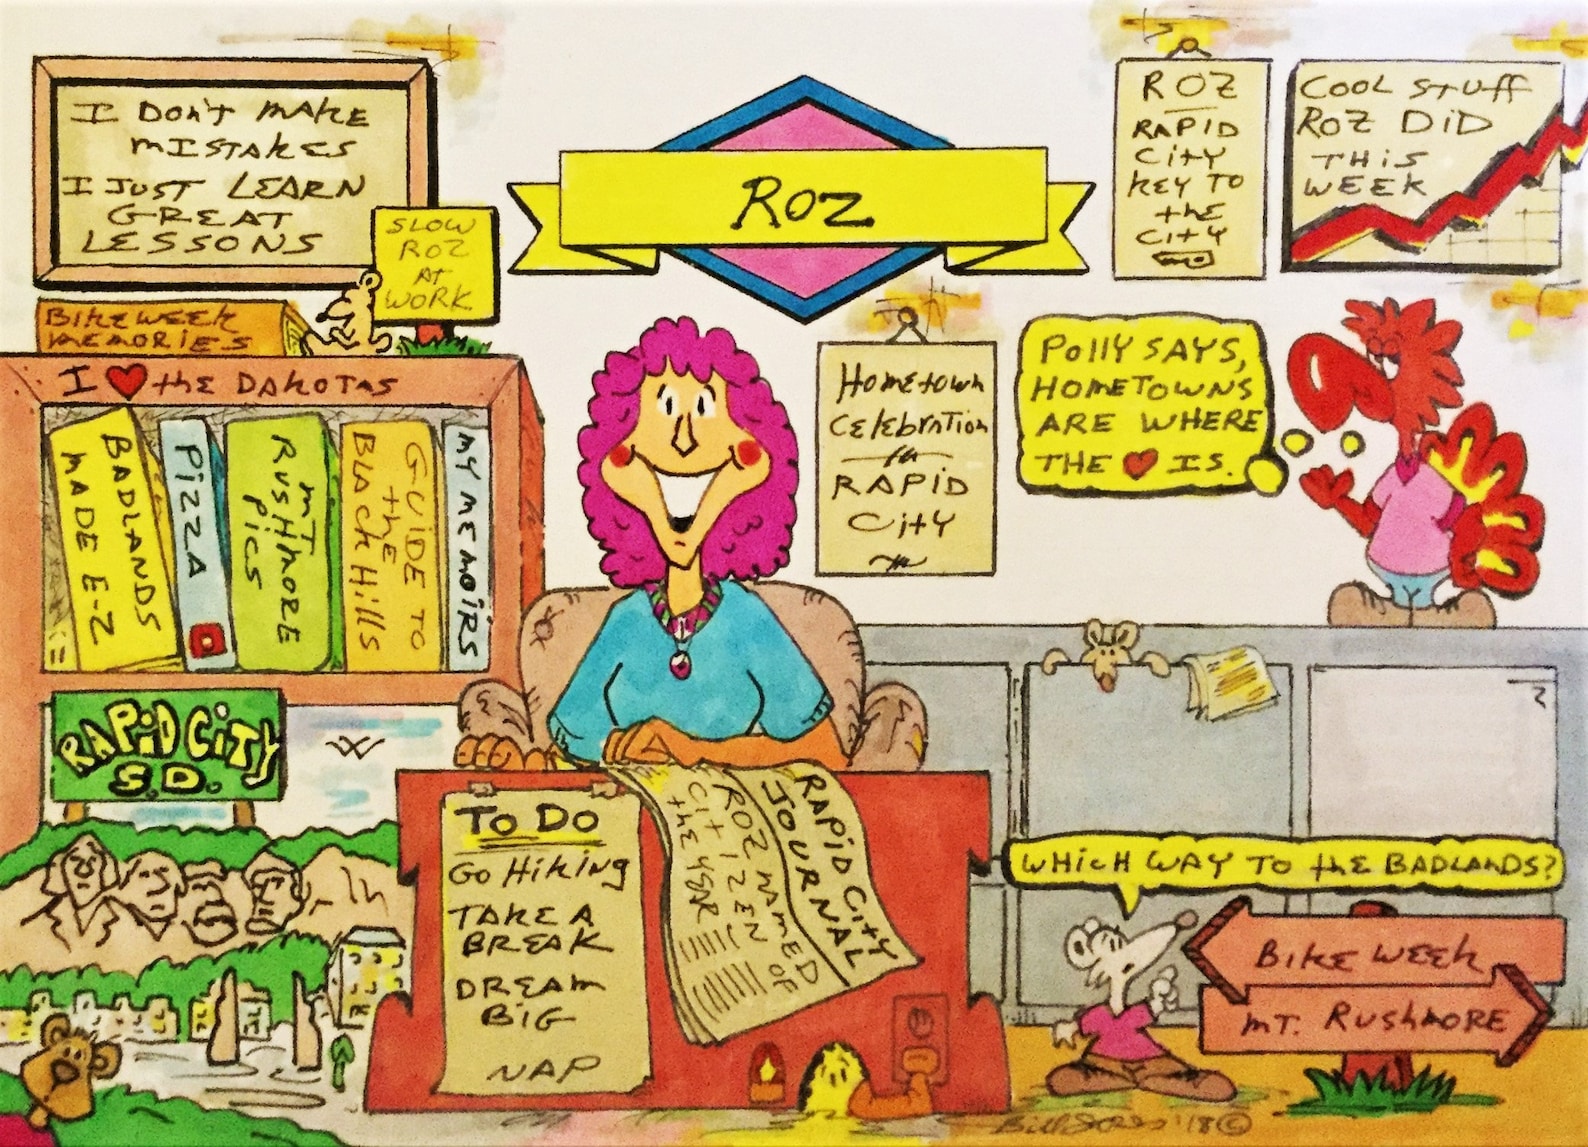 I DON'T MAKE
MISTAKES
I JUST LEARN
GREAT
LESSONS
SLOW
ROZ
AT
WORK
BIKE WEEK
MEMORIES
I ❤ the DAKOTAS
BADLANDS
MADE E-Z
PIZZA
MT
RUSHMORE
PICS
GUIDE TO
the
BLACK HILLS
MY MEMOIRS
RAPID CITY
S.D.
ROZ
ROZ
RAPID
CITY
KEY TO
the
CITY
COOL STUFF
ROZ DID
THIS
WEEK
Hometown
Celebration
in
RAPID
CITY
POLLY SAYS,
HOMETOWNS
ARE WHERE
THE ❤ IS.
TO DO
GO HIKING
TAKE A
BREAK
DREAM
BIG
NAP
RAPID CITY
JOURNAL
ROZ NAMED
CITIZEN OF
the YEAR
WHICH WAY TO the BADLANDS?
BIKE WEEK
MT. RUSHMORE
'18 ©